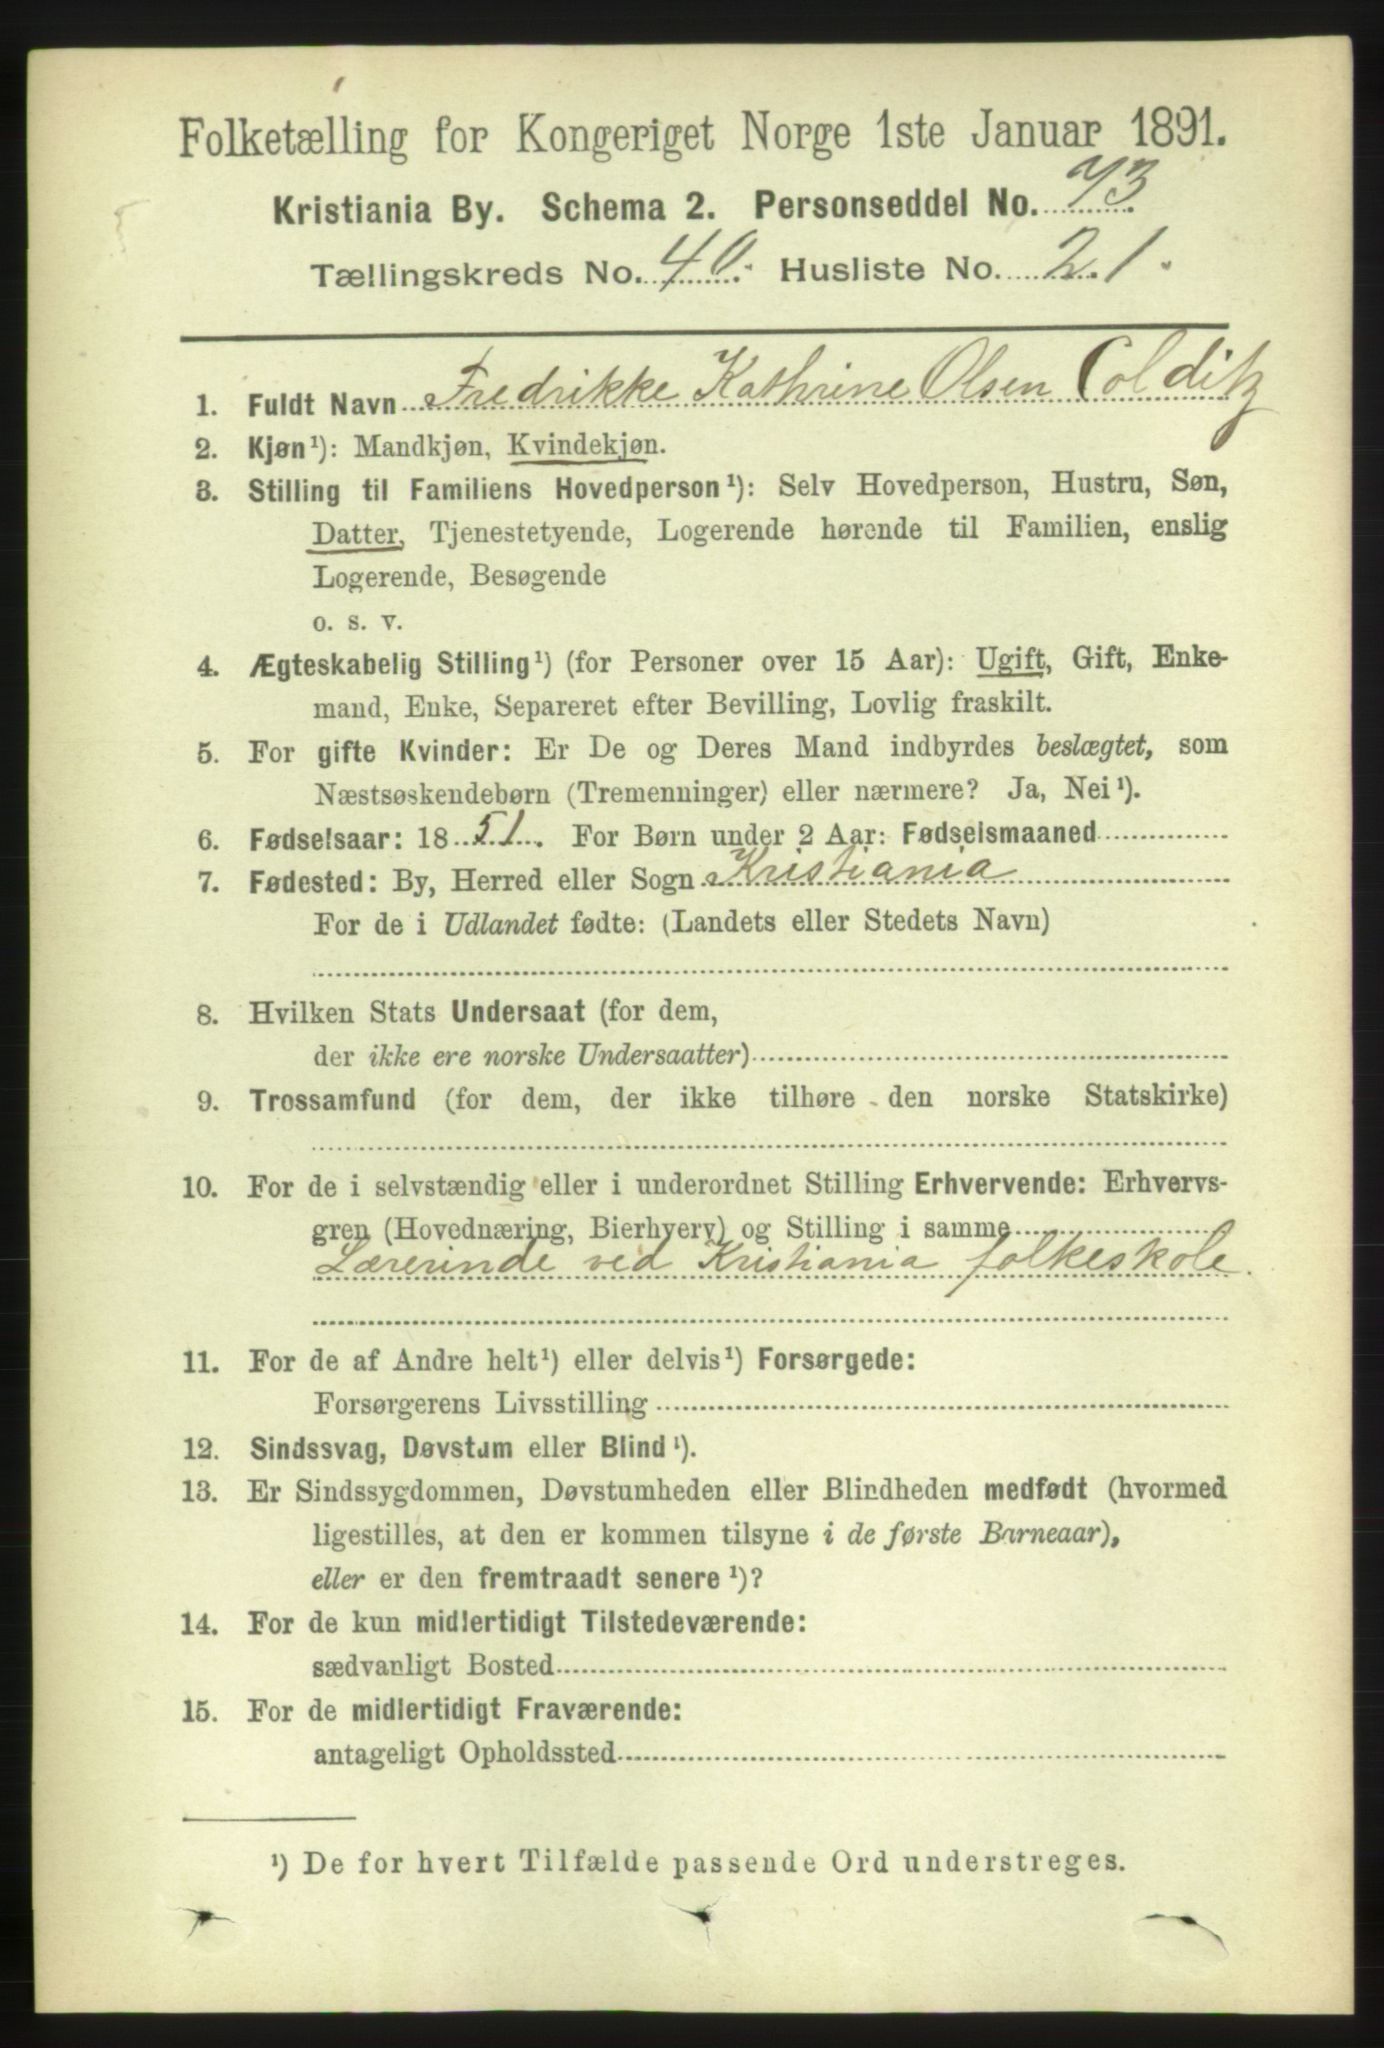 Folketælling for Kongeriget Norge 1ste Januar 1891.
Kristiania By. Schema 2. Personseddel No. 73
Tællingskreds No. 40. Husliste No. 21.
1. Fuldt Navn Fredrikke Kathrine Olsen Colditz
2. Kjøn¹): Mandkjøn, Kvindekjøn.
3. Stilling til Familiens Hovedperson¹): Selv Hovedperson, Hustru, Søn,
Datter, Tjenestetyende, Logerende hørende til Familien, enslig
Logerende, Besøgende
o. s. v.
4. Ægteskabelig Stilling¹) (for Personer over 15 Aar): Ugift, Gift, Enke-
mand, Enke, Separeret efter Bevilling, Lovlig fraskilt.
5. For gifte Kvinder: Er De og Deres Mand indbyrdes beslægtet, som
Næstsøskendebørn (Tremenninger) eller nærmere? Ja, Nei¹).
6. Fødselsaar: 1851. For Børn under 2 Aar: Fødselsmaaned
7. Fødested: By, Herred eller Sogn Kristiania
For de i Udlandet fødte: (Landets eller Stedets Navn)
8. Hvilken Stats Undersaat (for dem,
der ikke ere norske Undersaatter)
9. Trossamfund (for dem, der ikke tilhøre den norske Statskirke)
10. For de i selvstændig eller i underordnet Stilling Erhvervende: Erhvervs-
gren (Hovednæring, Bierhverv) og Stilling i samme
Lærerinde ved Kristiania folkeskole.
11. For de af Andre helt¹) eller delvis¹) Forsørgede:
Forsørgerens Livsstilling
12. Sindssvag, Døvstum eller Blind¹).
13. Er Sindssygdommen, Døvstumheden eller Blindheden medfødt (hvormed
ligestilles, at den er kommen tilsyne i de første Barneaar),
eller er den fremtraadt senere¹)?
14. For de kun midlertidigt Tilstedeværende:
sædvanligt Bosted
15. For de midlertidigt Fraværende:
antageligt Opholdssted
¹) De for hvert Tilfælde passende Ord understreges.